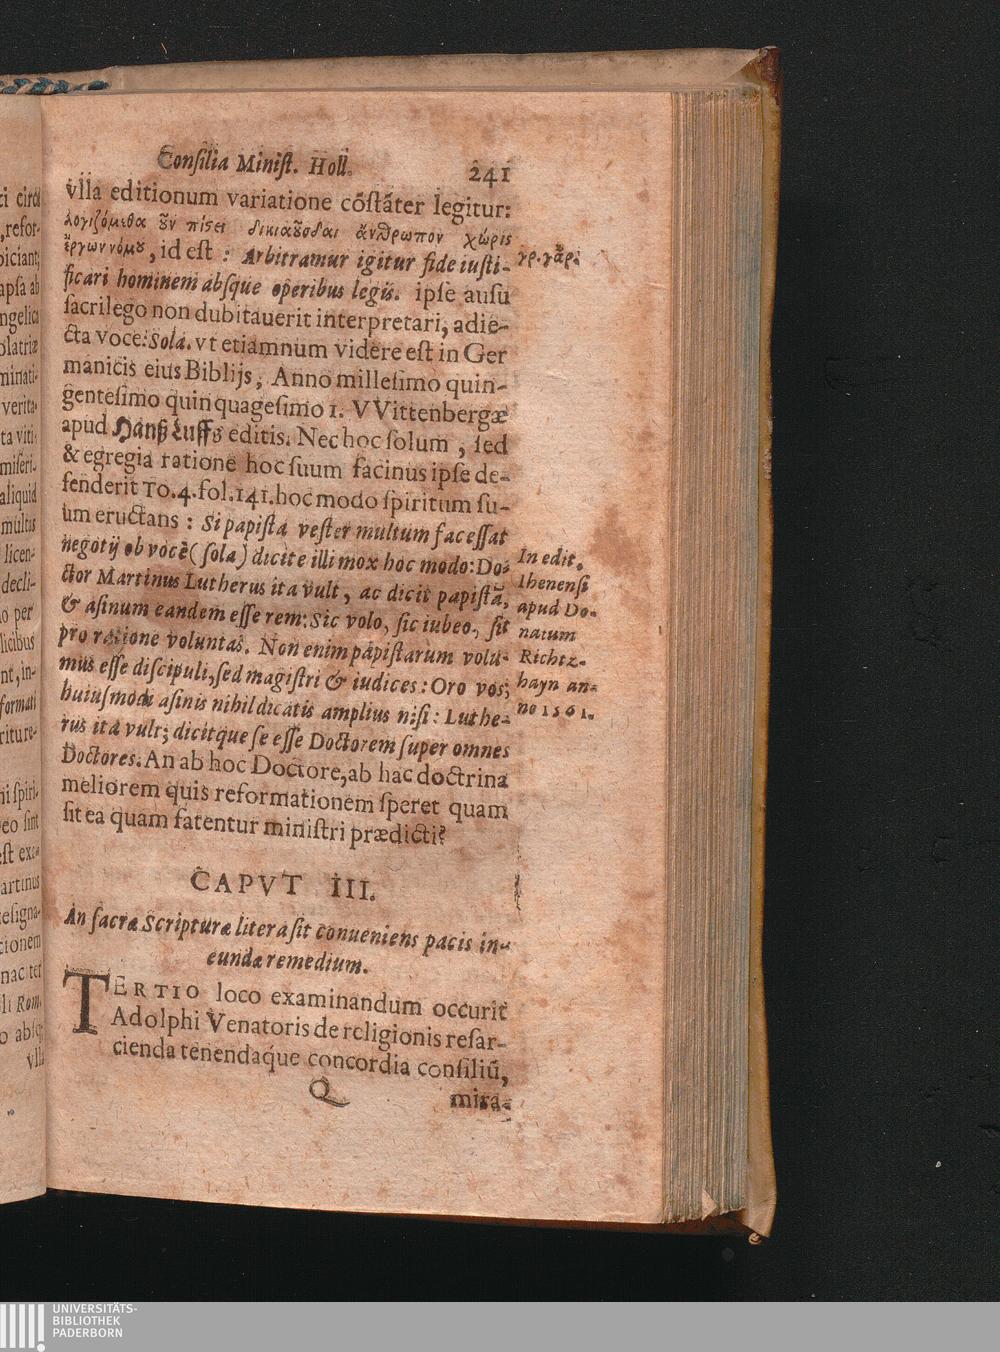 Consilia Minist. Holl. 241
vlla editionum variatione cõstãter legitur:
λογιζόμεθα ȣ̃ν πίςει δικιαȣ̃σθαι ἄνθρωπον χώρις
ἔργων νόμȣ, id est : Arbitramur igitur fide iusti-
ficari hominem absque operibus legis. ipse ausu
sacrilego non dubitauerit interpretari, adie-
cta voce: Sola. vt etiamnum videre est in Ger
manicis eius Biblijs, Anno millesimo quin-
gentesimo quinquagesimo 1. VVittenbergæ
apud Hanß Luffs editis. Nec hoc solum, sed
& egregia ratione hoc suum facinus ipse de-
fenderit To. 4. fol. 141. hoc modo spiritum su-
um eructans : Si papista vester multum facessat
negotij ob vocẽ (sola) dicite illi mox hoc modo: Do-
ctor Martinus Lutherus ita vult, ac dicit papistã,
& asinum eandem esse rem: Sic volo, sic iubeo, sit
pro ratione voluntas. Non enim papistarum volu-
mus esse discipuli, sed magistri & iudices: Oro vos,
huiusmodi asinis nihil dicatis amplius nisi: Luthe-
rus ita vult; dicitque se esse Doctorem super omnes
Doctores. An ab hoc Doctore, ab hac doctrina
meliorem quis reformationem speret quam
sit ea quam fatentur ministri prædicti?
γρ. γὰρ.
In edit.
Ihenensi
apud Do-
natum
Richtz-
hayn an-
no 1561.
CAPVT III.
An sacræ Scripturæ litera sit conueniens pacis in-
eundæ remedium.
TERTIO loco examinandum occurit
Adolphi Venatoris de religionis resar-
cienda tenendaq́ue concordia consiliũ,
Q mira-
ci circa
, refor-
biciant,
apsa ab
ngelica
olatriæ
minati-
verita-
ta viti-
miseri-
aliquid
multus
licen-
decli-
o per
licibus
nt, in-
formati
riture-
ni spiri-
eo sint
est exa-
artinus
esigna-
tionem
nac ter
li Rom.
o absq;
vlla
UNIVERSITÄTS-
BIBLIOTHEK
PADERBORN